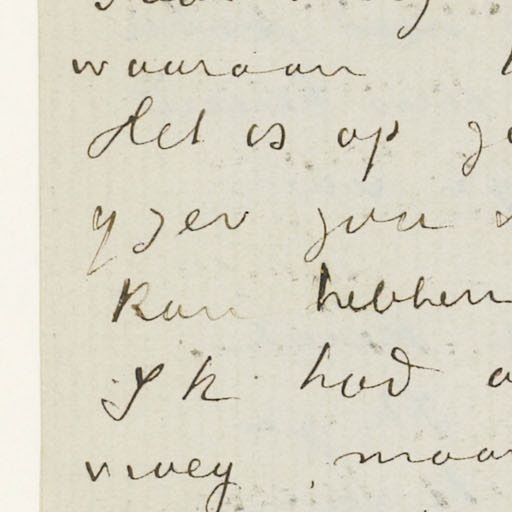 waaraan
Het is op
yzer zou
kan hebben
Ik had
vroeg, maar